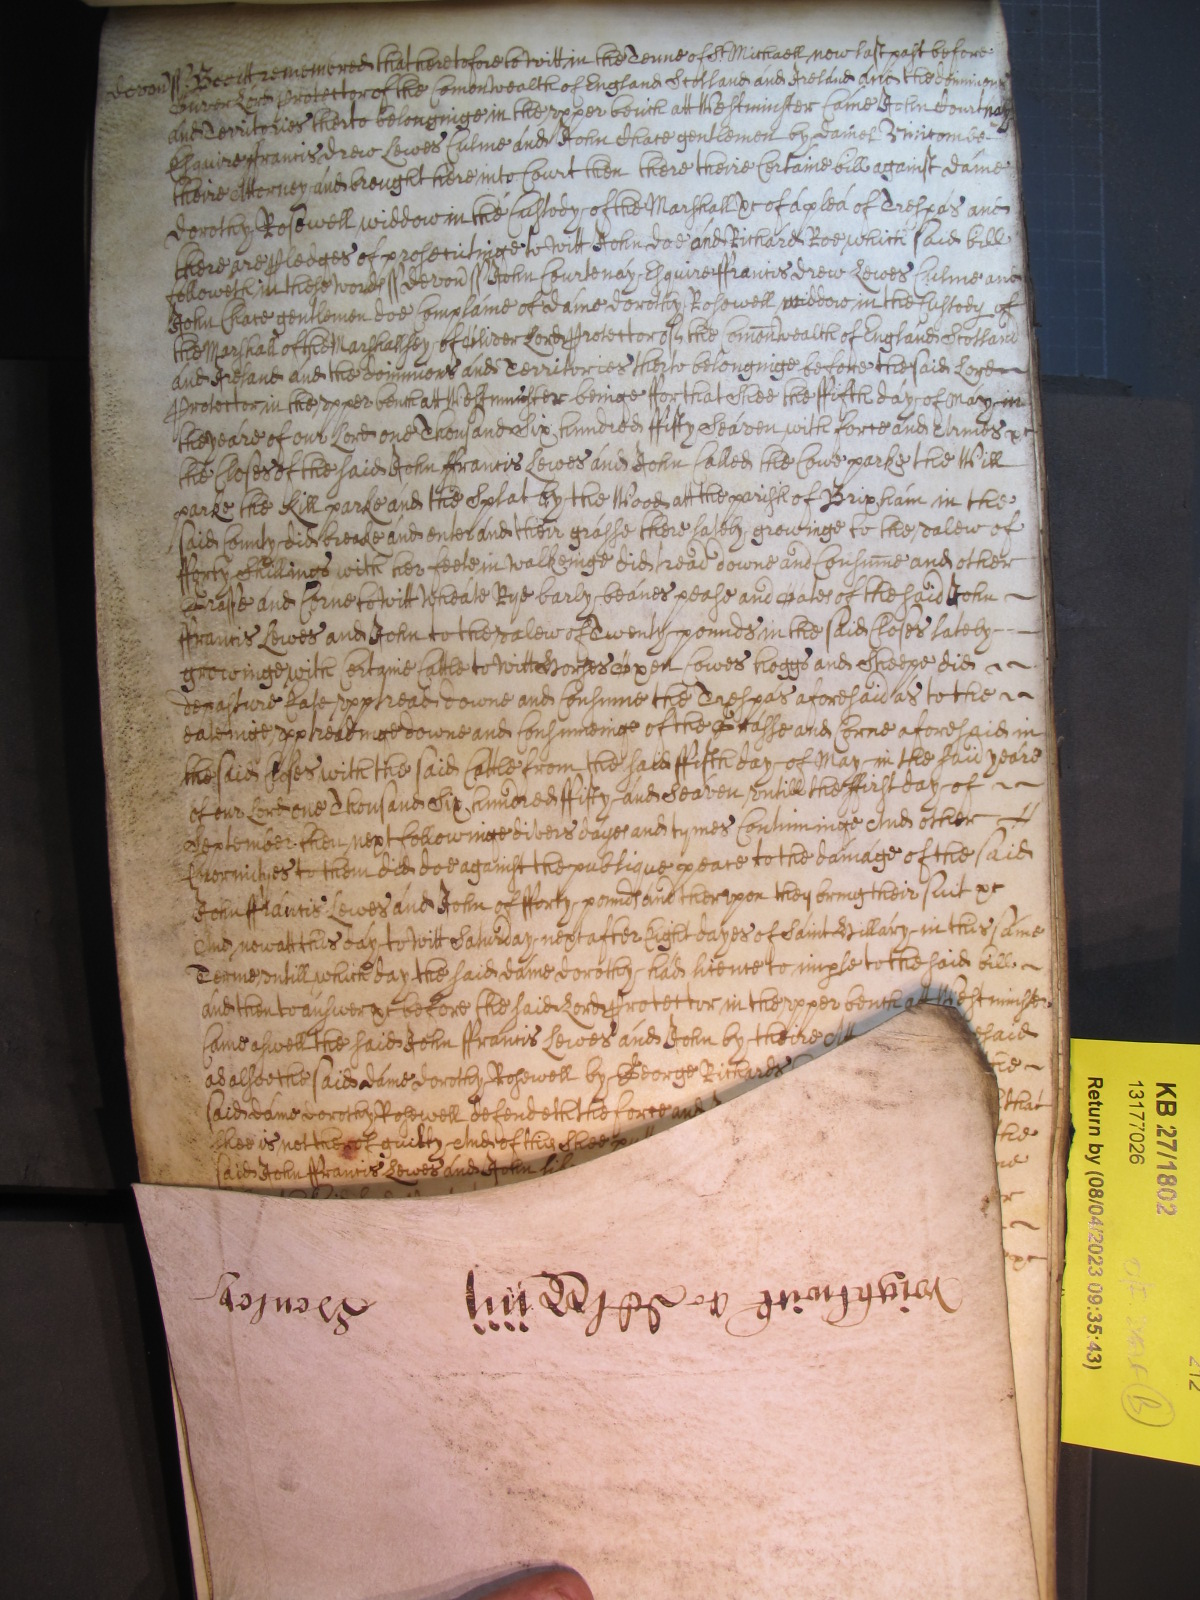 Devon ss Bee itt remembred that heretofore to witt in the Terme of St. Michaell now last past before
Oliver Lord Protector of the Comonwealth of England Scotland and Ireland and the dominions
and Territories therto belonginge in the upper bench att Westminster Came John Courtnay
Esquire ffrancis Drew Lewes Culme and John Chace gentlemen by Daniel
theire Attorney and brought here into Court then there theire Certaine bill against Dame
Dorothy Rosewell widdow in the Custody of the Marshall &c of a plea of Trespas and
there are Pledges of prosecutinge to witt John Doe and Richard Roe which said bill
followeth in these words ss Devon ss John Courtenay Esquire ffrancis Drew Lewes Culme and
John Chace gentlemen doe Complaine of Dame Dorothy Rosewell widdow in the Custody of
the Marshall of the Marshallsey of Oliver Lord Protector of the Comonwealth of England Scotland
and Ireland and the Dominions and Territories therto belonginge before the said Lord
Protector in the upper bench att Westminster beinge ffor that shee the ffifth day of May in
the yeare of our Lord one Thousand Six hundred ffifty Seaven with force and Armes &c
the Closes of the said John ffrancis Lewes and John Called the Cowe parke the Will
parke the Kill parke and the Splat by the Wood att the parish of Brixham in the
said County did breake and enter and their grasse there lately growinge to the valew of
fforty Shillings with her feete in walkeinge did tread downe and Consume and other
Grasse and Corne to witt Wheate Rye barly beanes pease and oates of the said John
ffrancis Lewes and John to the valew of Twenty pounds in the said Closes lately
growinge with Certaine Cattle to witt Horses Oxen Cowes hoggs and Sheepe did
depasture Eate upp tread downe and Consume the Trespas aforesaid as to the
eateinge upp treadinge downe and Consumeinge of the Grasse and Corne aforesaid in
the said Closes with the said Cattle from the said ffifth day of May in the said yeare
of our Lord one Thousand Six hundred ffifty and Seaven untill the ffirst day of
September then next followinge divers dayes and tymes Continuinge And other
Enormityes to them did doe against the publique peace to the damage of the said
John ffrancis Lewes and John of fforty pounds and therupon they bring their suit &c
And now att this day to witt Saturday next after Eight dayes of Saint Hillary in this same
Terme untill which day the said Dame Dorothy had licence to imple to the said bill
and then to answer &c before the said Lord Protector in the upper bench att Westminster
Came aswell the said John ffrancis Lewes and John by theire Att said
as alsoe the said Dame Dorothy Rosewell by George Richards the
said Dame Dorothy Rosewell defendeth the force and that
shee is not therof guilty And of this shee the
said John ffrancis Lewes and John
Wightwick &c iiij
Henley
KB 27/1802
13177026
Return by (08/04/2023 09:35:43)
212